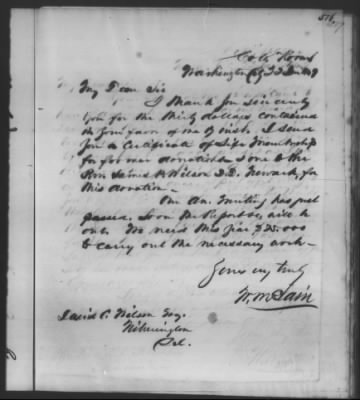 Col. Rooms
Washington City 22 Jan
My Dear Sir
I thank you sincerely
you for the thirty dollars contained
in your favor of the 9 inst. I send
you a Certificate of Life Membership
for former donations & one to the
Rev. James P. Wilson D.D. Newark, for
this donation.
Our An. Meeting has just
passed. Soon the Report will be
out. We need this year
to carry out the necessary work.
Yours very truly
W. McLain
David C. Wilson Esq.
Wilmington
Del.